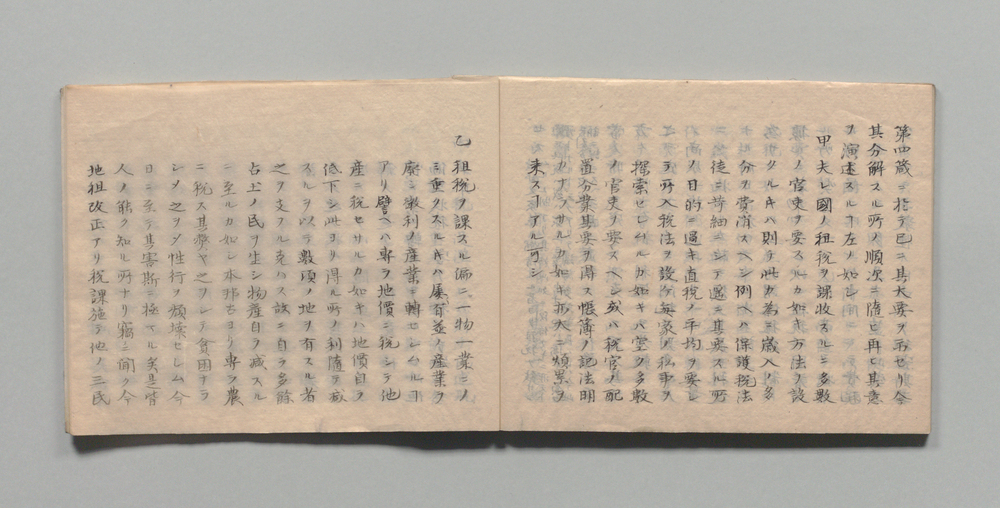 第四歳ニ於テ已ニ其大要ヲ示セリ今
其分解スル所ノ順次ニ随ヒ再ヒ其意
ヲ演述スルヿ左ノ如シ
甲夫レ國ノ租税ヲ課收スルニ多數
ノ官吏ヲ要スルカ如キ方法ヲ設
クルキハ則チ此カ為ニ歳入ノ多
分ヲ費消スヘシ例ヘハ保護税法
ノ徒ニ苛細ニシテ過ニ其要スル所
ノ目的ニ過キ直税ノ平均ヲ要シ
テ所入税法ヲ設ケ毎家ノ私事ヲ
探索セシムルカ如キハ空ク多數
ノ官吏ヲ要スヘシ或ハ税官ノ配
置分業其要ヲ得ス帳簿ノ記法明
カナラサルカ如キ亦大ニ煩累ヲ
来スヿアル可シ
乙租税ヲ課スル偏ニ一物一業ニノ
ミ重クスルキハ屡有益ノ産業ヲ
廢シ微利ノ産業ニ轉セシムルヿ
アリ譬ヘハ専ヲ地價ニ税シテ他
産ニ税セサルカ如キハ地價自ラ
低下シ此ヨリ得ル所ノ利随テ寡
スルヲ以テ數頃ノ地ヲ有スル者
之ヲ支フル克ハス故ニ自ラ多餘
占土ノ民ヲ生シ物産自ラ減スル
ニ至ルカ如シ本邦古ヨリ専ラ農
ニ税ス其弊ヤ之ヲシテ貧困ナラ
シメ之ヲシテ性行ヲ頽壊セシム今
日ニ至テ其害斯ニ極マル矣是皆
人ノ能ク知ル所ナリ竊ニ聞ク今
地租改正アリ税課施テ他ノ三民